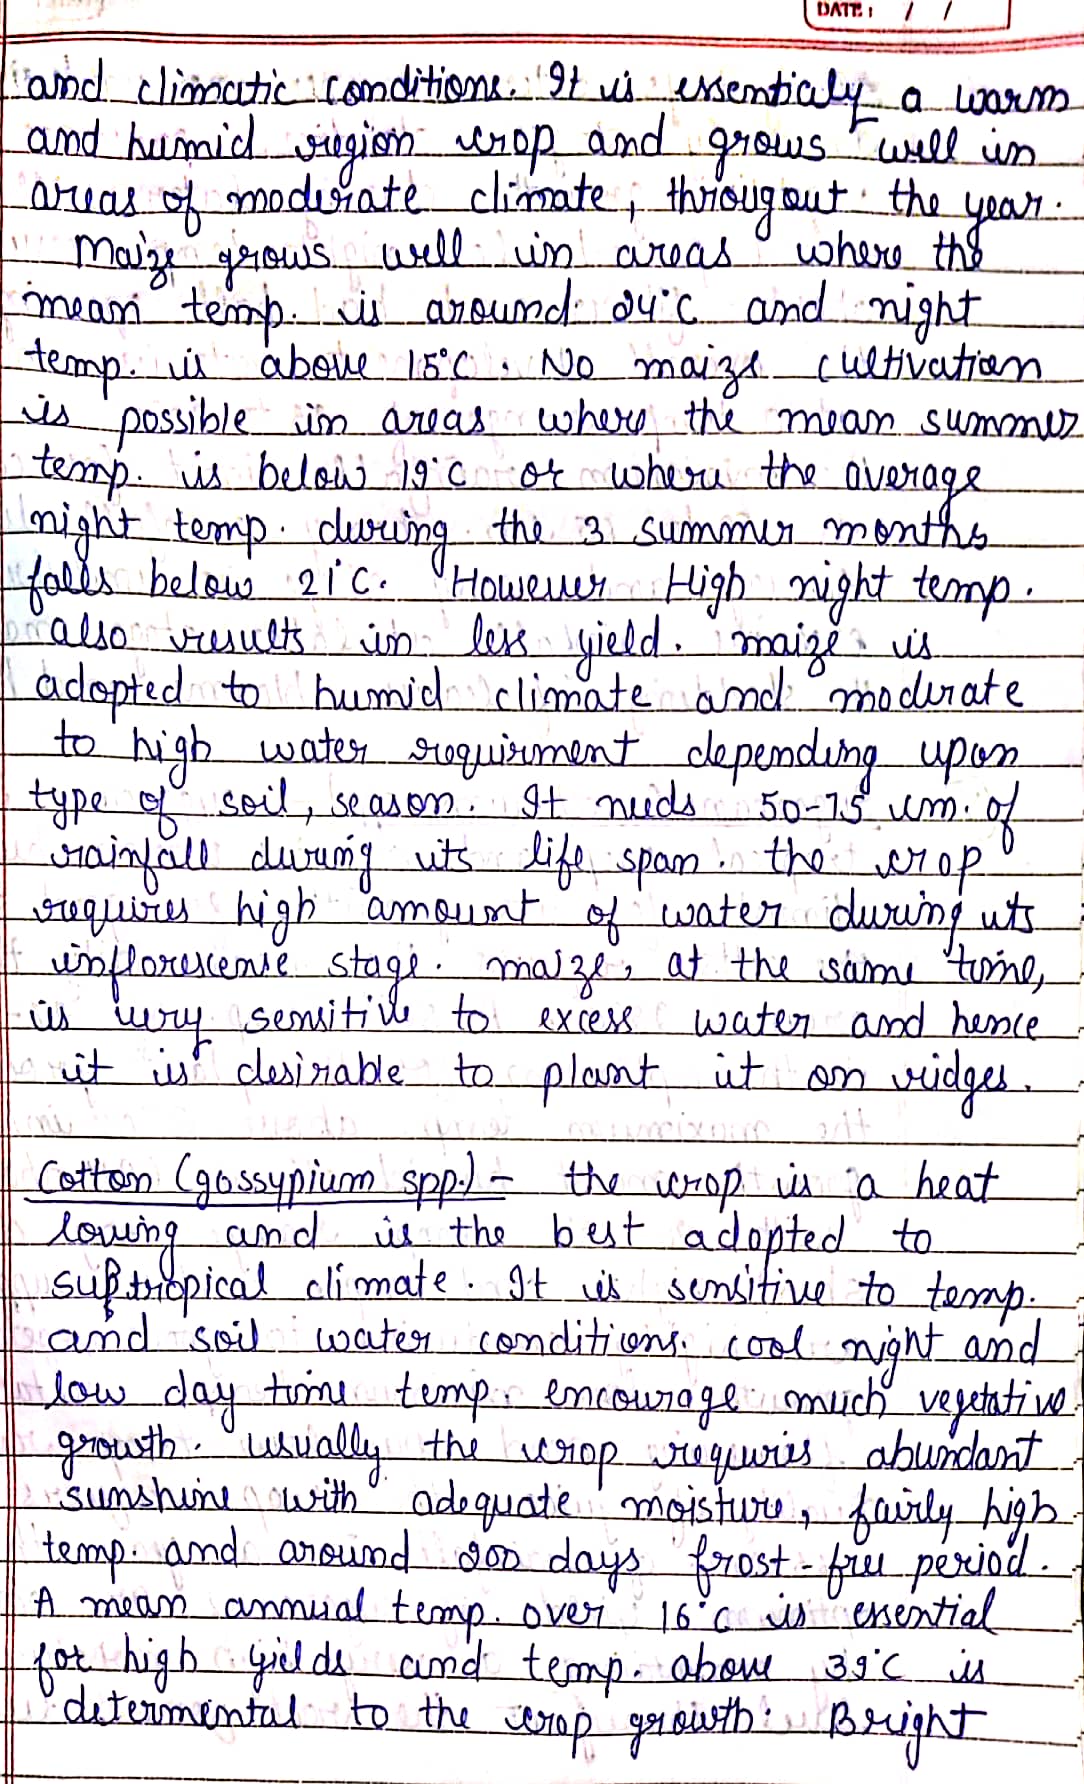 DATE: / /
and climatic conditions. It is essentialy a warm
and humid region crop and grows well in
areas of moderate climate, througout the year.
Maize grows well in areas where the
mean temp. is around 24°C and night
temp. is above 15°C. No maize cultivation
is possible in areas where the mean summer
temp. is below 19°C or where the average
night temp. during the 3 summer months
falls below 21°C. However High night temp.
also results in less yield. maize is
adopted to humid climate and moderate
to high water requirment depending upon
type of soil, season. It needs 50-75 cm. of
rainfall during its life span. the crop
requires high amount of water during its
inflorescense stage. maize, at the same time,
is very sensitive to excess water and hence
it is desirable to plant it on ridges.
Cotton (gossypium spp.) - the crop is a heat
loving and is the best adopted to
subtropical climate. It is sensitive to temp.
and soil water conditions. cool night and
low day time temp. encourage much vegetative
growth. usually the crop requires abundant
sunshine with adequate moisture, fairly high
temp. and around 200 days frost-free period.
A mean annual temp. over 16°C is essential
for high yields and temp. above 39°C is
determental to the crop growth. Bright